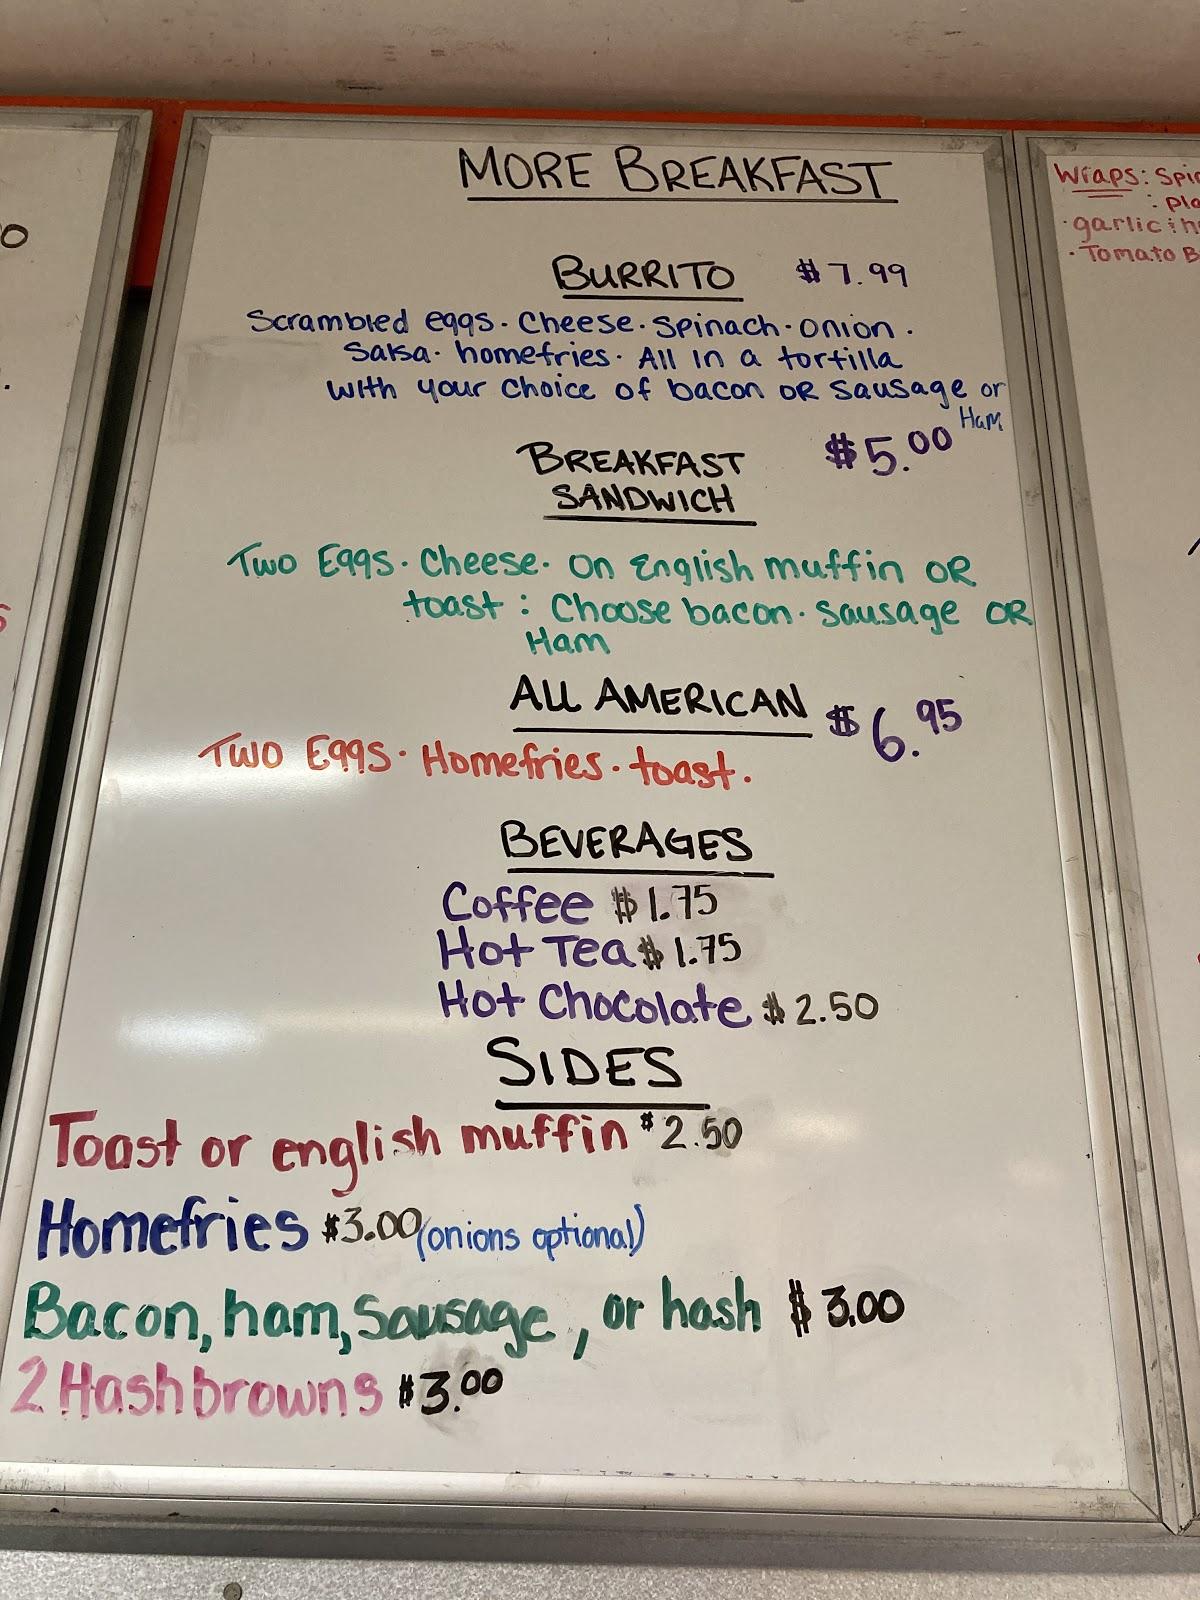 MORE BREAKFAST
BURRITO $7.99
Scrambled eggs · Cheese · Spinach · onion ·
Salsa · homefries · All in a tortilla
with your choice of bacon OR sausage or
Ham
BREAKFAST $5.00
SANDWICH
Two Eggs · Cheese · On English muffin OR
toast : Choose bacon · sausage OR
Ham
ALL AMERICAN $6.95
Two Eggs · Homefries · toast.
BEVERAGES
Coffee $1.75
Hot Tea $1.75
Hot Chocolate $2.50
SIDES
Toast or english muffin $2.50
Homefries $3.00 (onions optional)
Bacon, ham, Sausage, or hash $3.00
2 Hashbrowns $3.00
Wraps:
garlic
Tomato B